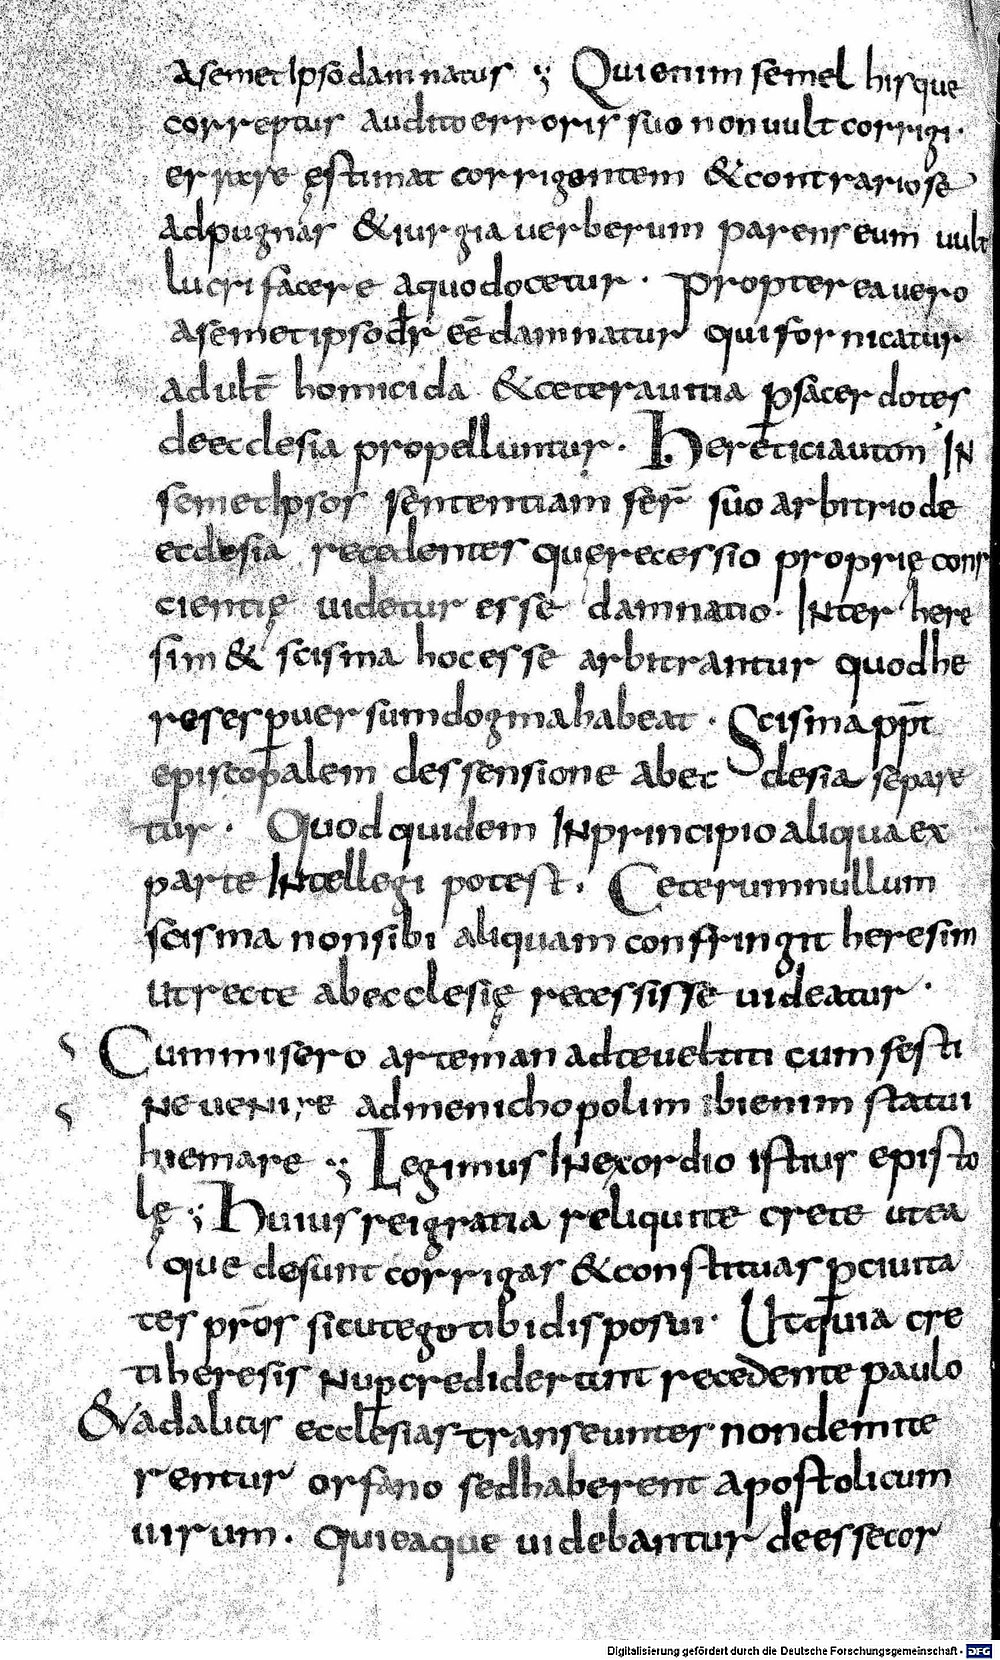 asemetIpsō damnatus ⁊ Quienim semel bisque
correptus auditoerroris suo nonuult corrigi·
errare ęstimat corrigentem &contrariose
adpugnas &iurgia uerberum parens eum uult
lucrifacere aquodocetur · Propter eauero
asemetipsodr̄ eē damnatus quifornicatur
adult̄ homicida &ceterauitia p̱sacerdotes
deecclesia propelluntur · Hereticiautem IN
semetIpsos sententiam fer̄ suo arbitriode
ecclesia recedentes querecessio proprię cons
cientię uidetur esse damnatio· INter here
sim & scisma hocesse arbitrantur quodhe
reses p̱uersumdogmahabeat · Scisma pp̄t
episcopalem dessensione abec clesia separe
tur · Quod quidem INprincipioaliquaex
parte INtellegi potest · Ceterumnullum
scisma nonsibi aliquam confringit heresim
Utrecte abecclesię recessisse uideatur ·
Cummisero arteman adteueltiti cumfesti
Ne ueNire admenichopolim ibienim statui
hiemare ⁊ Legimus INexordio istius episto
lę ⁊ Huiusreigratia reliquite crete utea
que desunt corrigas &constituas p̱ciuita
tes prōs sicutegotibidisposui· Utquia cre
tiheresis Nup̱crediderunt recedente paulo
&vadalius ecclesias transeuntes nondemite
rentur orfano sedhaberent apostolicum
uirum · Quieaque uidebantur deessecor
Digitalisierung gefördert durch die Deutsche Forschungsgemeinschaft - DFG